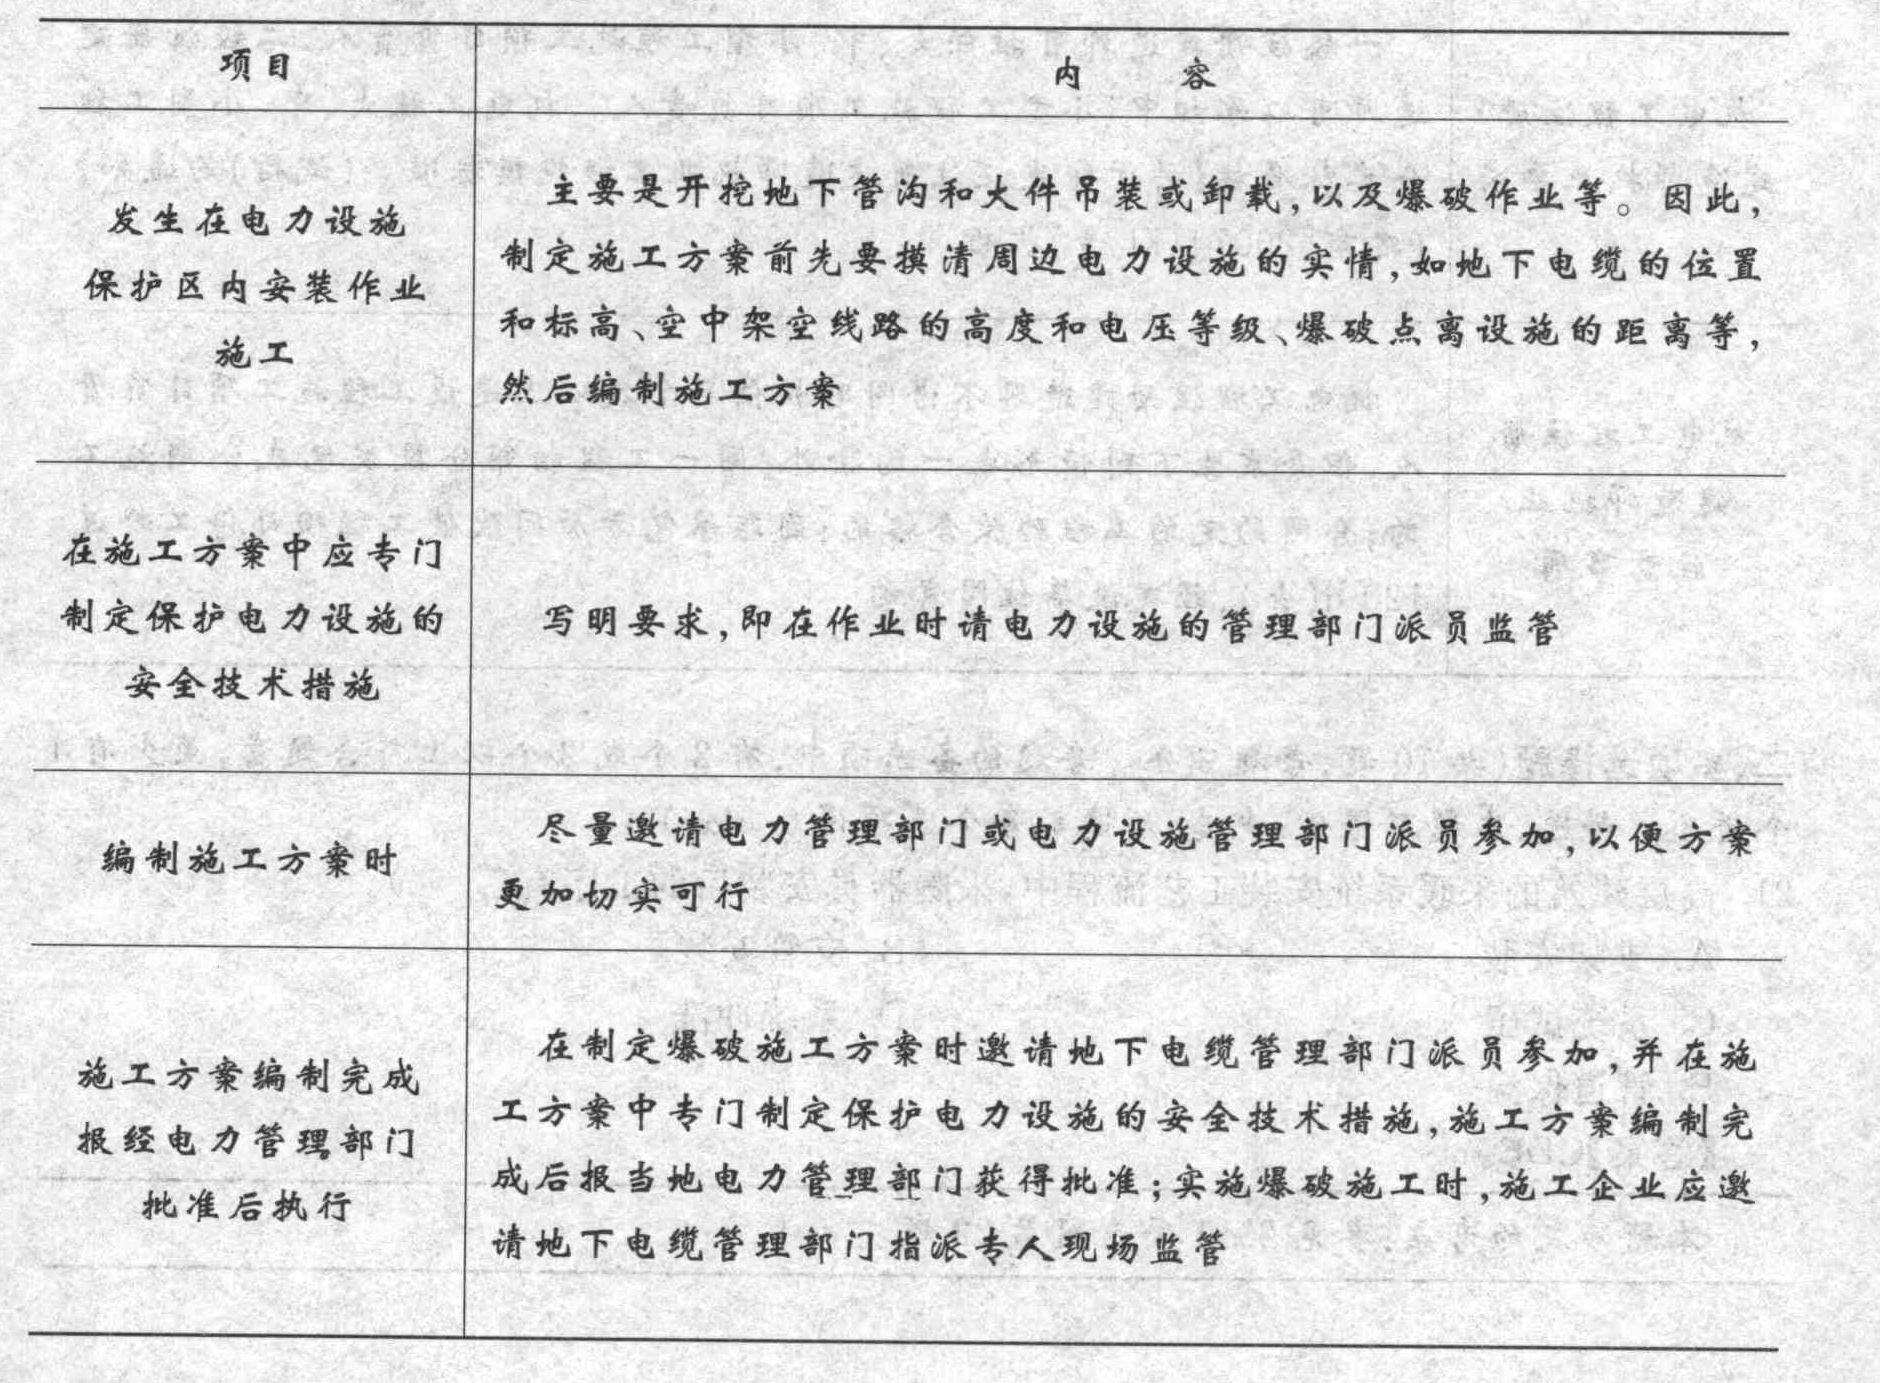 项目
内 容
发生在电力设施
保护区内安装作业
施工
主要是开挖地下管沟和大件吊装或卸载,以及爆破作业等。因此,
制定施工方案前先要摸清周边电力设施的实情,如地下电缆的位置
和标高、空中架空线路的高度和电压等级、爆破点离设施的距离等,
然后编制施工方案
在施工方案中应专门
制定保护电力设施的
安全技术措施
写明要求,即在作业时请电力设施的管理部门派员监管
编制施工方案时
尽量邀请电力管理部门或电力设施管理部门派员参加,以便方案
更加切实可行
施工方案编制完成
报经电力管理部门
批准后执行
在制定爆破施工方案时邀请地下电缆管理部门派员参加,并在施
工方案中专门制定保护电力设施的安全技术措施,施工方案编制完
成后报当地电力管理部门获得批准;实施爆破施工时,施工企业应邀
请地下电缆管理部门指派专人现场监管